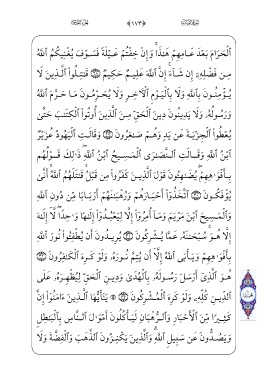 ٱلْحَرَامَ بَعْدَ عَامِهِمْ هَٰذَا ۚ وَإِنْ خِفْتُمْ عَيْلَةً فَسَوْفَ يُغْنِيكُمُ ٱللَّهُ
مِن فَضْلِهِۦٓ إِن شَآءَ ۚ إِنَّ ٱللَّهَ عَلِيمٌ حَكِيمٌ ۝ قَٰتِلُوا۟ ٱلَّذِينَ لَا
يُؤْمِنُونَ بِٱللَّهِ وَلَا بِٱلْيَوْمِ ٱلْـَٔاخِرِ وَلَا يُحَرِّمُونَ مَا حَرَّمَ ٱللَّهُ
وَرَسُولُهُۥ وَلَا يَدِينُونَ دِينَ ٱلْحَقِّ مِنَ ٱلَّذِينَ أُوتُوا۟ ٱلْكِتَٰبَ حَتَّىٰ
يُعْطُوا۟ ٱلْجِزْيَةَ عَن يَدٍ وَهُمْ صَٰغِرُونَ ۝ وَقَالَتِ ٱلْيَهُودُ عُزَيْرٌ
ٱبْنُ ٱللَّهِ وَقَالَتِ ٱلنَّصَٰرَى ٱلْمَسِيحُ ٱبْنُ ٱللَّهِ ۖ ذَٰلِكَ قَوْلُهُم
بِأَفْوَٰهِهِمْ ۖ يُضَٰهِـُٔونَ قَوْلَ ٱلَّذِينَ كَفَرُوا۟ مِن قَبْلُ ۚ قَٰتَلَهُمُ ٱللَّهُ ۚ أَنَّىٰ
يُؤْفَكُونَ ۝ ٱتَّخَذُوٓا۟ أَحْبَارَهُمْ وَرُهْبَٰنَهُمْ أَرْبَابًا مِّن دُونِ ٱللَّهِ
وَٱلْمَسِيحَ ٱبْنَ مَرْيَمَ وَمَآ أُمِرُوٓا۟ إِلَّا لِيَعْبُدُوٓا۟ إِلَٰهًا وَٰحِدًا ۖ لَّآ إِلَٰهَ
إِلَّا هُوَ ۚ سُبْحَٰنَهُۥ عَمَّا يُشْرِكُونَ ۝ يُرِيدُونَ أَن يُطْفِـُٔوا۟ نُورَ ٱللَّهِ
بِأَفْوَٰهِهِمْ وَيَأْبَى ٱللَّهُ إِلَّآ أَن يُتِمَّ نُورَهُۥ وَلَوْ كَرِهَ ٱلْكَٰفِرُونَ ۝
هُوَ ٱلَّذِىٓ أَرْسَلَ رَسُولَهُۥ بِٱلْهُدَىٰ وَدِينِ ٱلْحَقِّ لِيُظْهِرَهُۥ عَلَى
ٱلدِّينِ كُلِّهِۦ وَلَوْ كَرِهَ ٱلْمُشْرِكُونَ ۝ ۞ يَٰٓأَيُّهَا ٱلَّذِينَ ءَامَنُوٓا۟ إِنَّ
كَثِيرًا مِّنَ ٱلْأَحْبَارِ وَٱلرُّهْبَانِ لَيَأْكُلُونَ أَمْوَٰلَ ٱلنَّاسِ بِٱلْبَٰطِلِ
وَيَصُدُّونَ عَن سَبِيلِ ٱللَّهِ ۗ وَٱلَّذِينَ يَكْنِزُونَ ٱلذَّهَبَ وَٱلْفِضَّةَ وَلَا